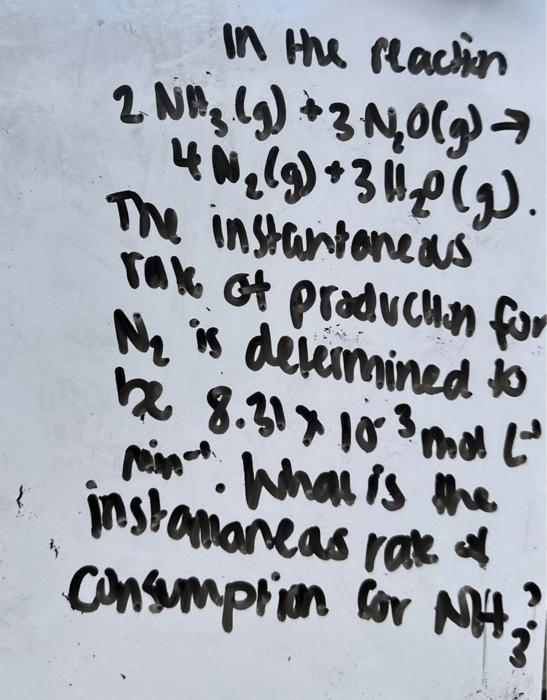 In the reaction
2 NH₃(g) + 3 N₂O(g) →
4 N₂(g) + 3 H₂O(g).
The instantaneous
rate of production for
N₂ is determined to
be 8.31 × 10⁻³ mol L⁻¹
min⁻¹. What is the
instantaneous rate of
consumption for NH₃?